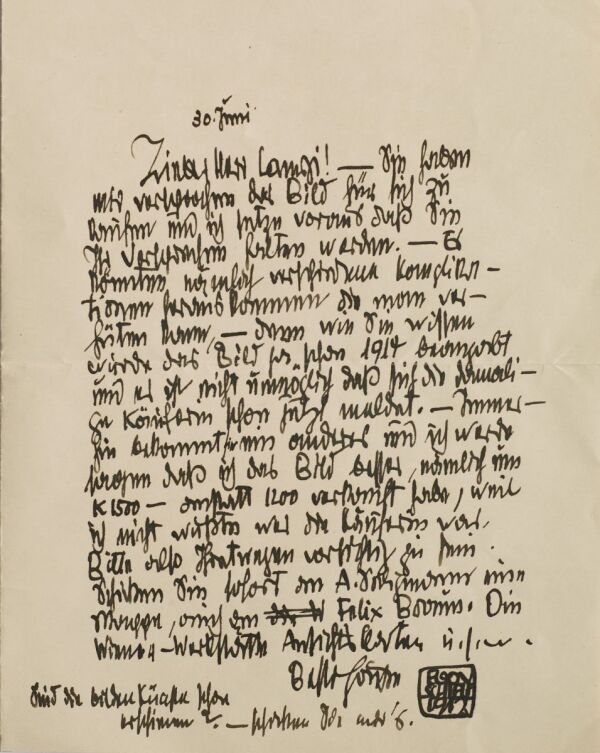 30. Juni.
Lieber Herr Lanyi! — Sie haben
mir versprochen das Bild für sich zu
kaufen und ich setze voraus daß Sie
Ihr Versprechen halten werden. — Es
könnten nämlich verschiedene Komplika-
tionen herauskommen die man ver-
hüten kann. — denn wie Sie wissen
wurde das Bild ja schon 1914 beangabt
und es ist nicht unmöglich daß sich die damali-
ge Käuferin schon jetzt meldet. — Immer-
hin bekommt sie ein anderes und ich werde
sagen daß ich das Bild besser, nämlich um
K 1500 — anstatt 1200 verkauft habe, weil
ich nicht wußte wer die Käuferin war.
Bitte also Ihretwegen vorsichtig zu sein.
Schicken Sie sofort an A. eine
Mappe, auch an Felix Die
Wiener-Werkstätte Ansichtskarten u.s.w.
Beste Grüße
EGON
SCHIELE
1917
Sind die beiden schon
erschienen? — schicken Sie mir's.